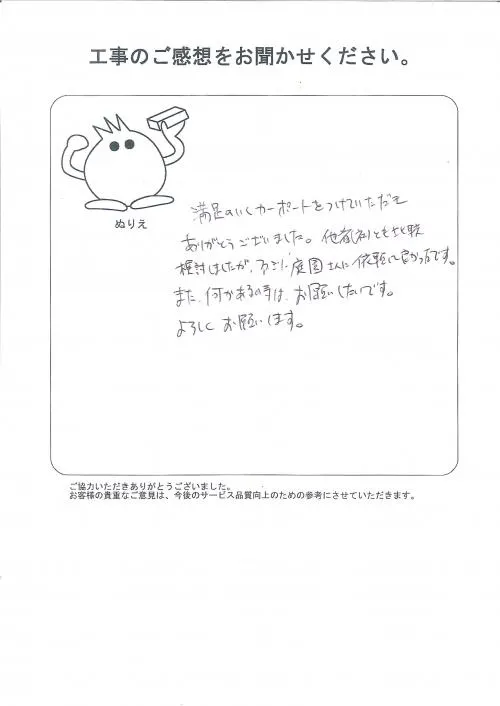 工事のご感想をお聞かせください。
ぬりえ
満足のいくカーポートをつけていただき
ありがとうございました。他者(社)とも比較
検討しましたが、庭園さんに依頼して良かったです。
また、何かある時は、お願いしたいです。
よろしくお願いします。
ご協力いただきありがとうございました。
お客様の貴重なご意見は、今後のサービス品質向上のための参考にさせていただきます。